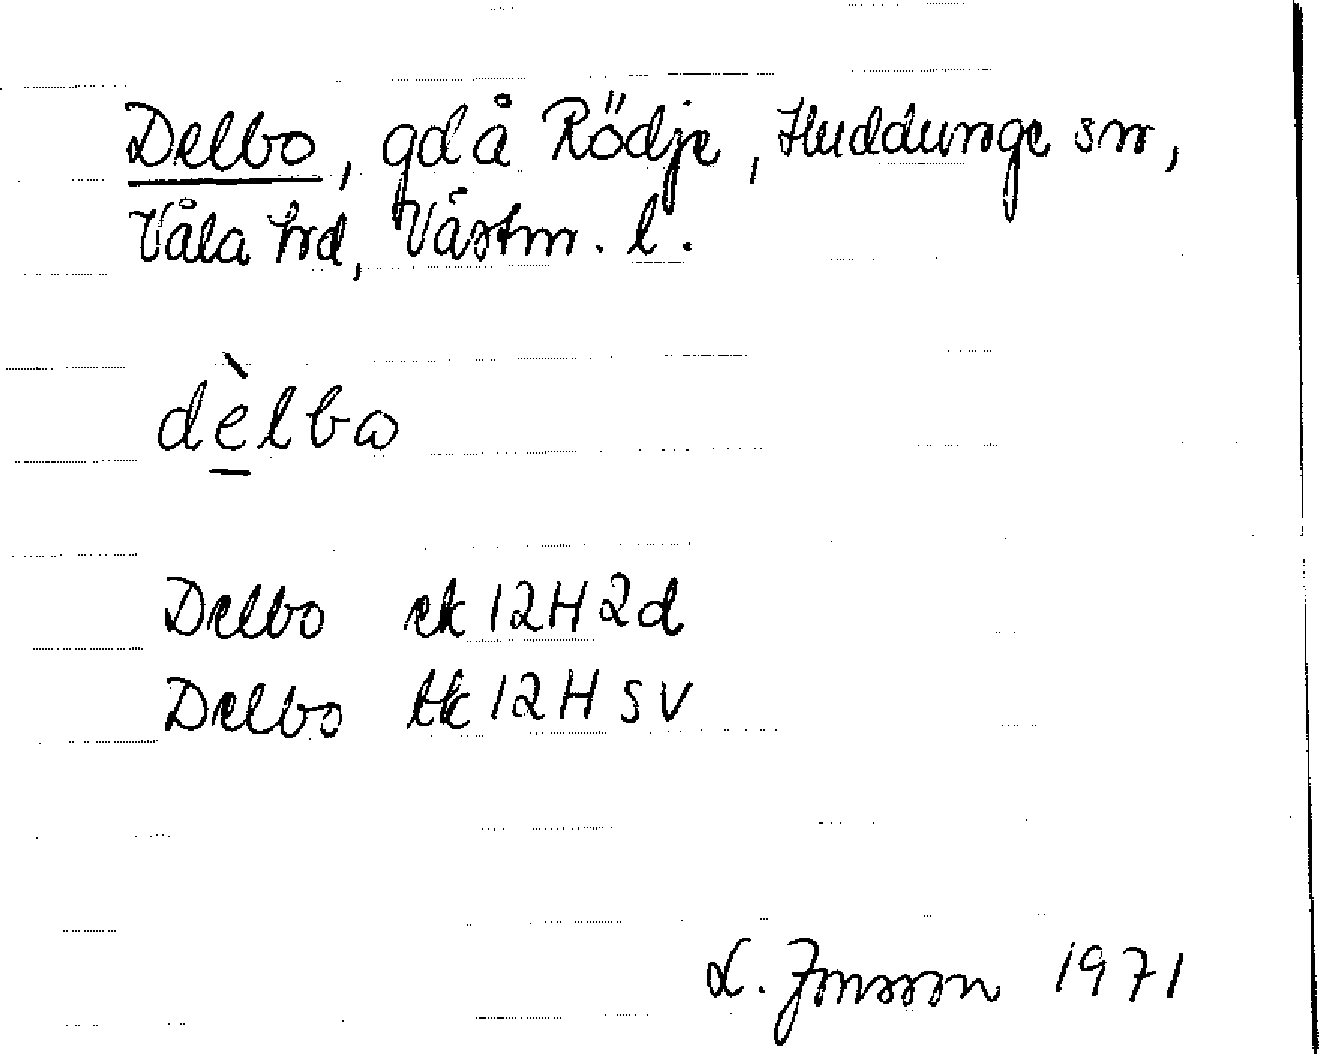 Delbo, gd å Rödje, Huddunge sn,
Våla hd, Västm. l.
dèlbω
Delbo ek 12H2d
Delbo tk 12H SV
L. Jonsson 1971